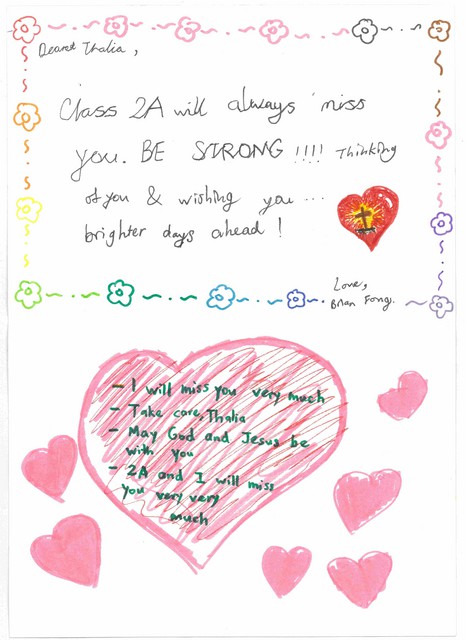 Dearest Thalia,
Class 2A will always miss
you. BE STRONG !!!! Thinking
of you & wishing you ...
brighter days ahead !
Love,
Brian Fong.
- I will miss you very much
- Take care, Thalia
- May God and Jesus be
with you
- 2A and I will miss
you very very
much